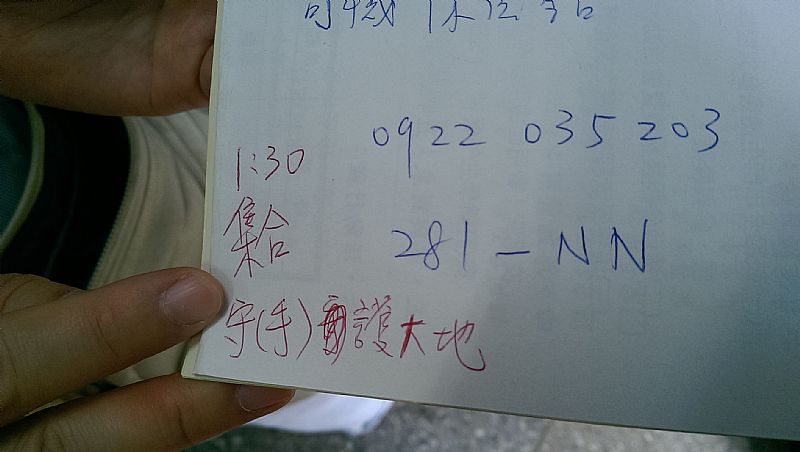 司機休
0922 035 203
281-NN
1:30
集合
守(手)護大地